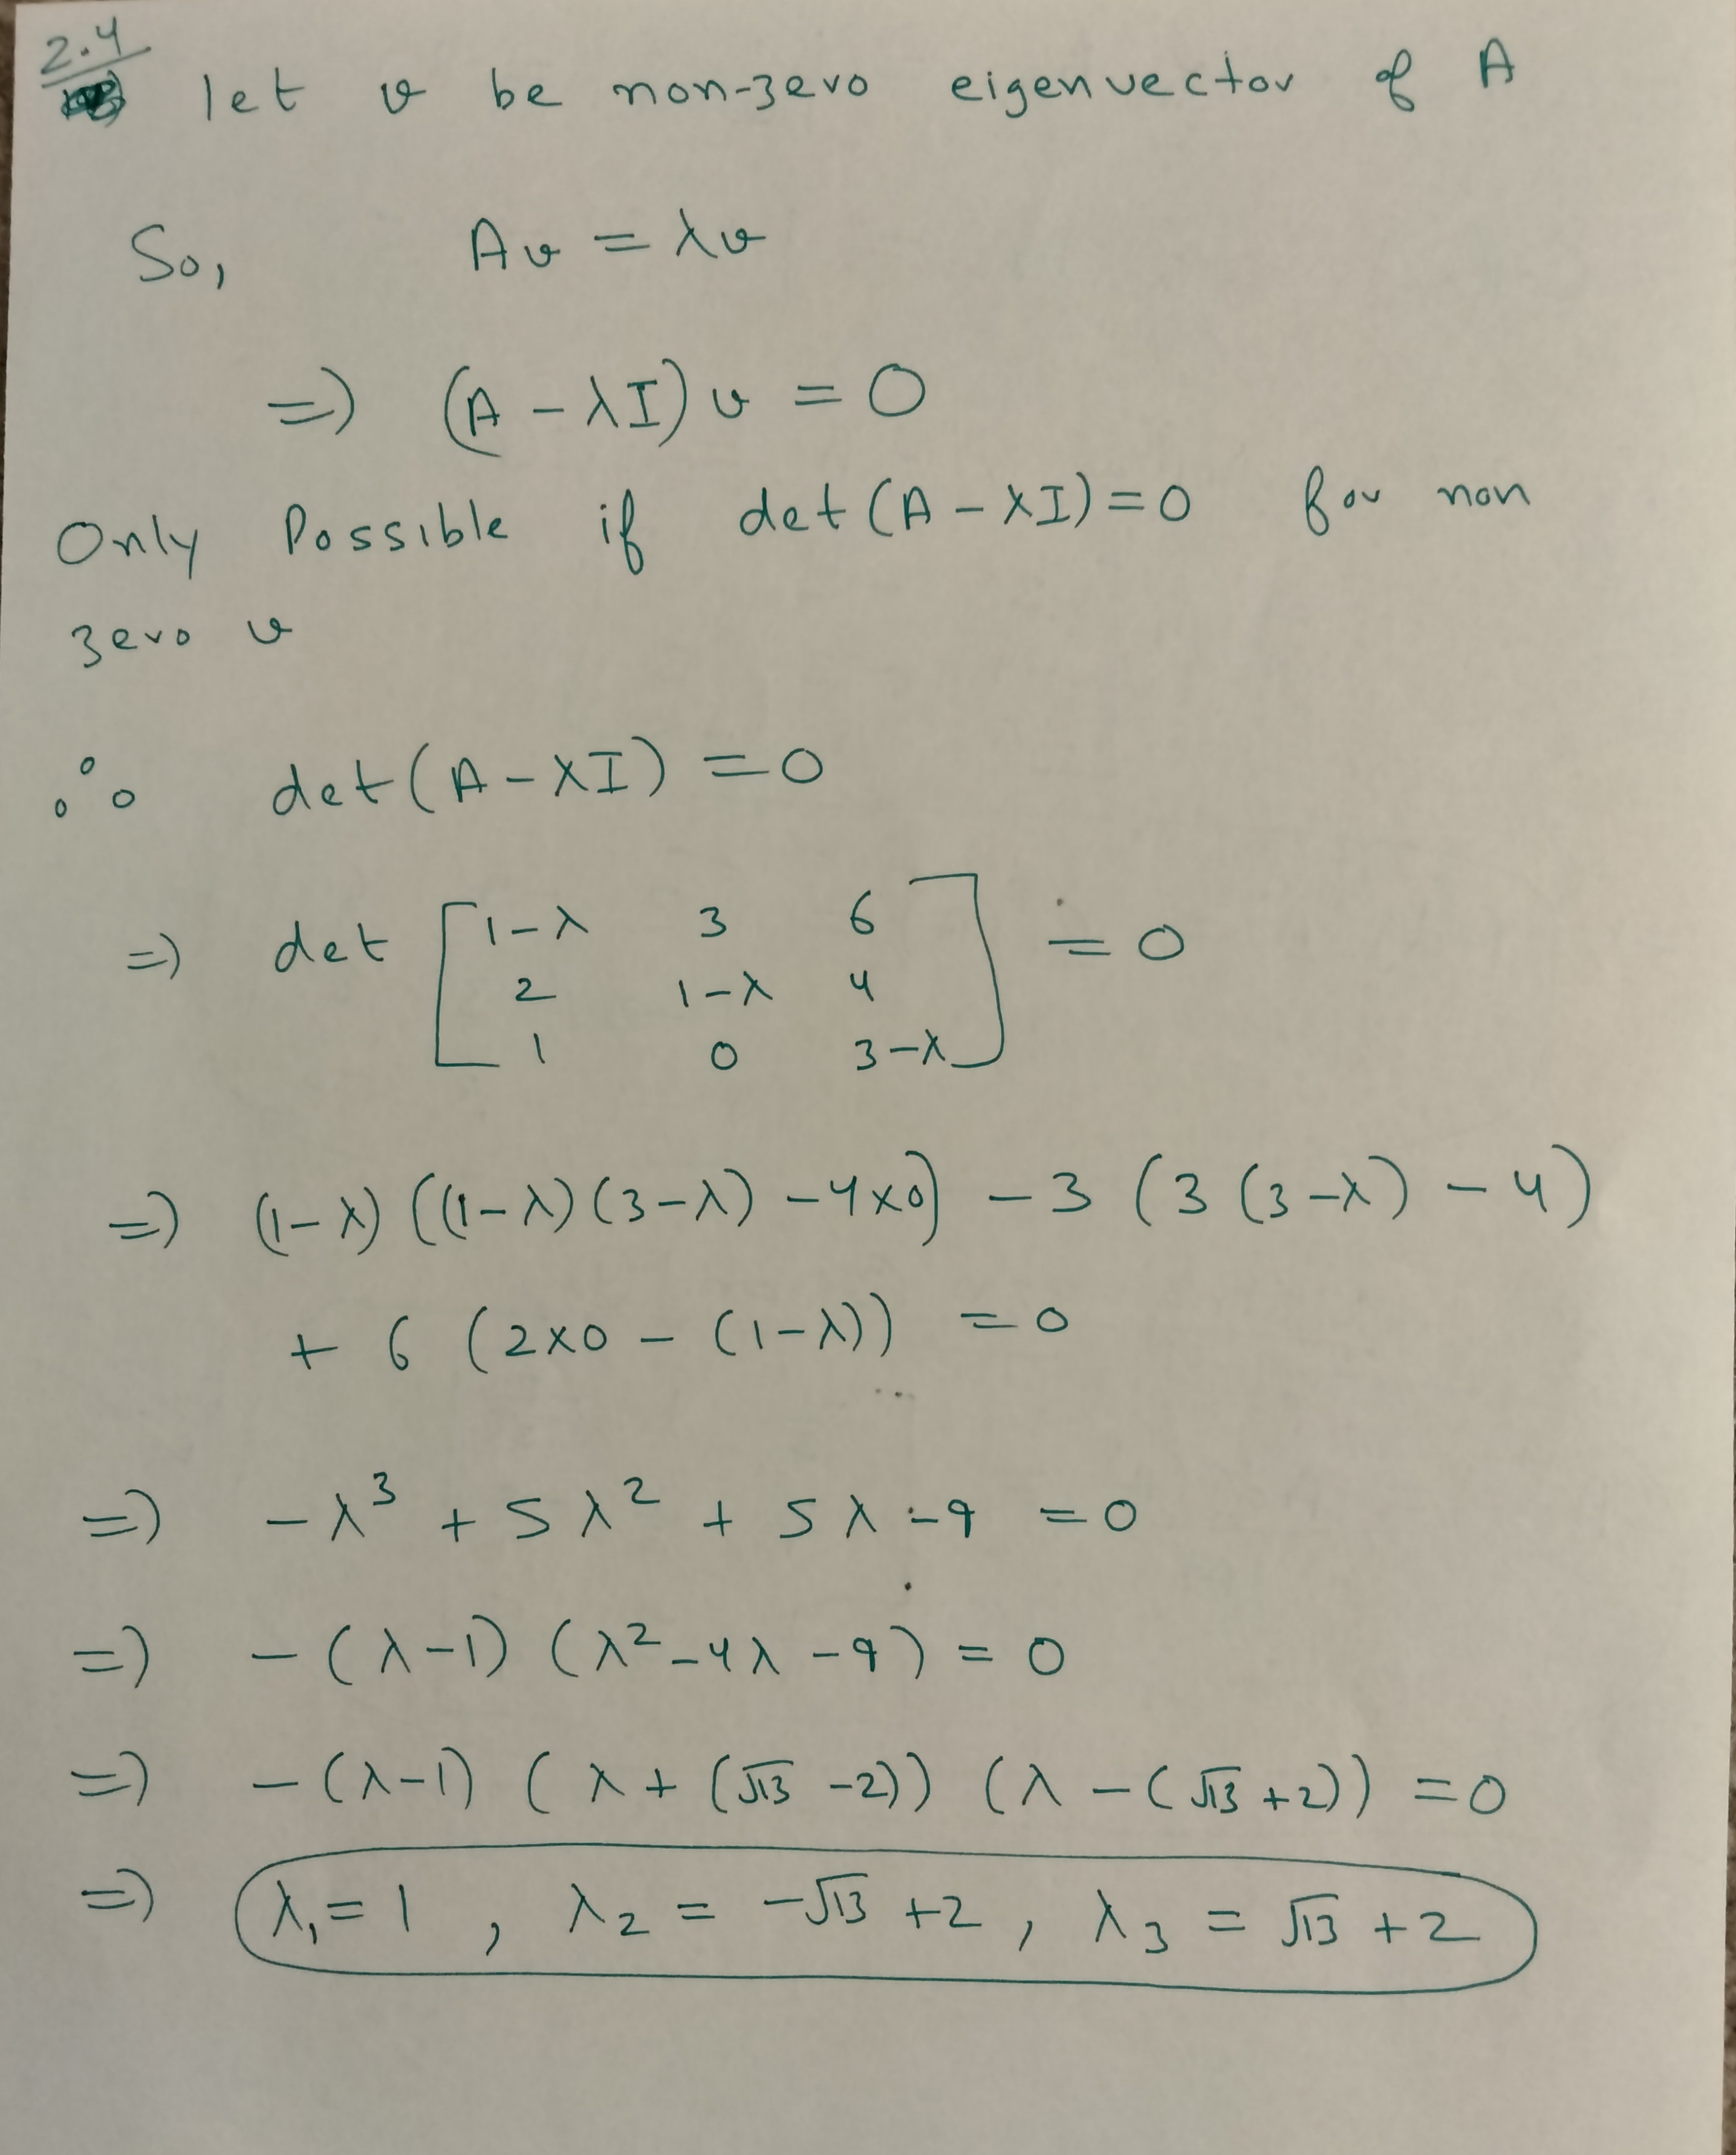 2.4
let v be non-zero eigenvector of A
So, Av = λv
=) (A - λI) v = 0
Only Possible if det(A - λI) = 0 for non
zero v
∴ det(A - λI) = 0
=) det [ 1-λ 3 6
2 1-λ 4
1 0 3-λ ] = 0
=) (1-λ) ((1-λ)(3-λ) - 4×0) - 3 (3(3-λ) - 4)
+ 6 (2×0 - (1-λ)) = 0
=) -λ³ + 5λ² + 5λ - 9 = 0
=) -(λ-1) (λ² - 4λ - 9) = 0
=) -(λ-1) (λ + (√13 - 2)) (λ - (√13 + 2)) = 0
=) λ₁ = 1 , λ₂ = -√13 + 2 , λ₃ = √13 + 2